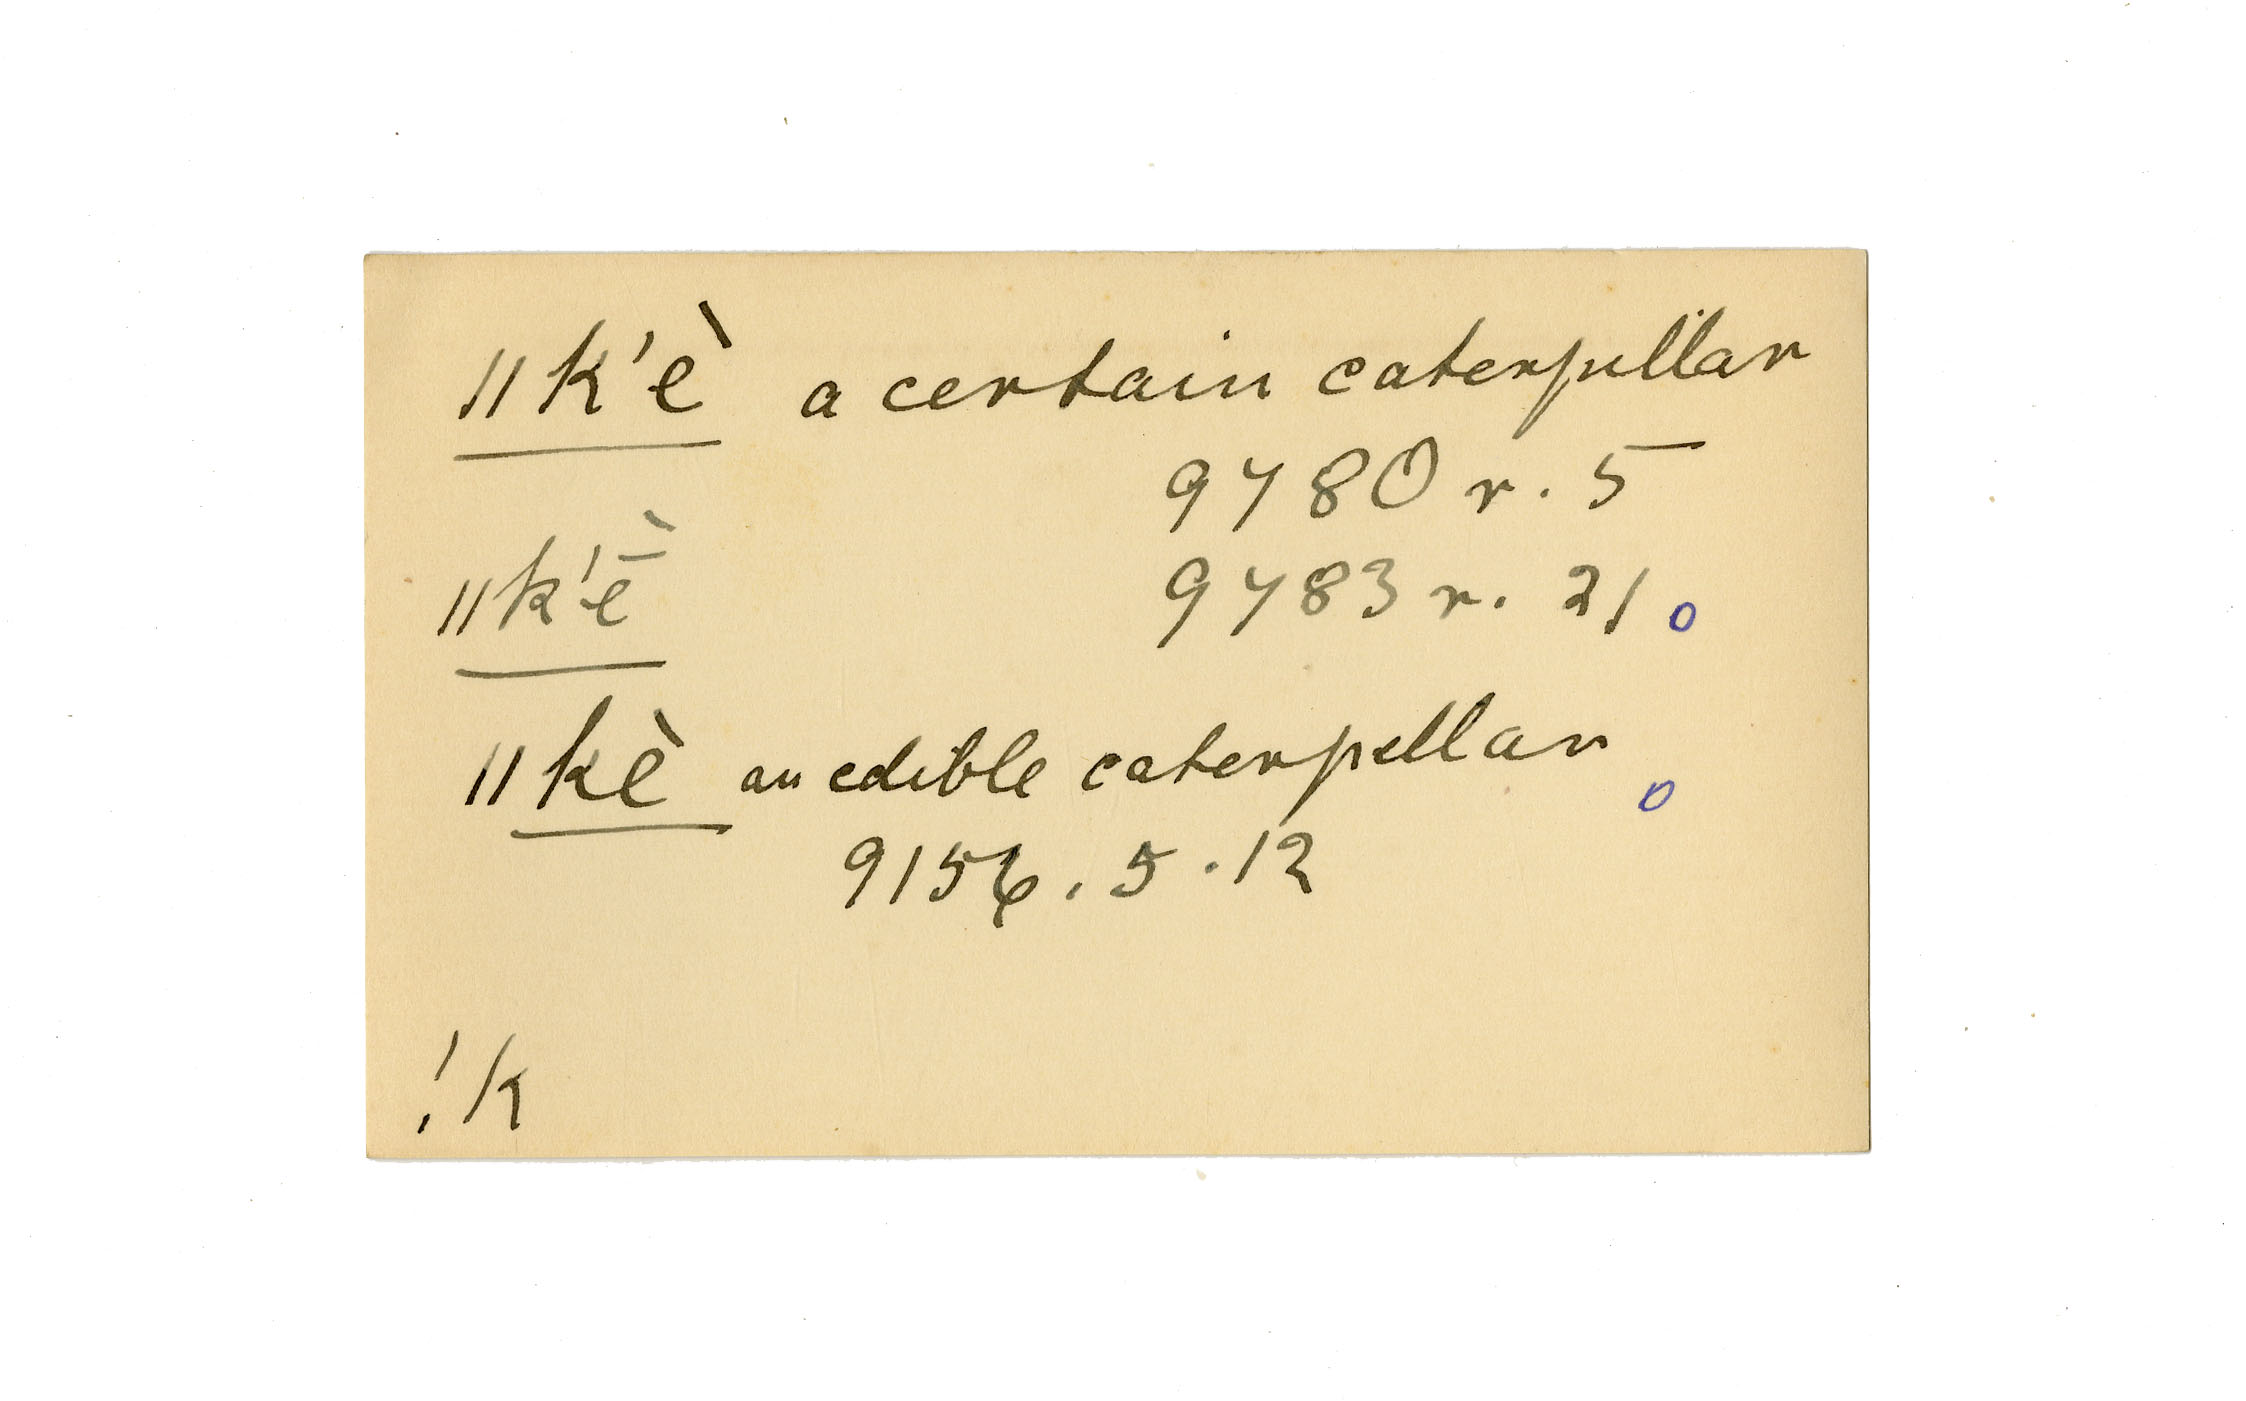 ǁk'è a certain caterpillar
9780 r. 5
ǁk'ḕ 9783 r. 21 o
ǁkè an edible caterpellar o
9156. 5. 12
!k